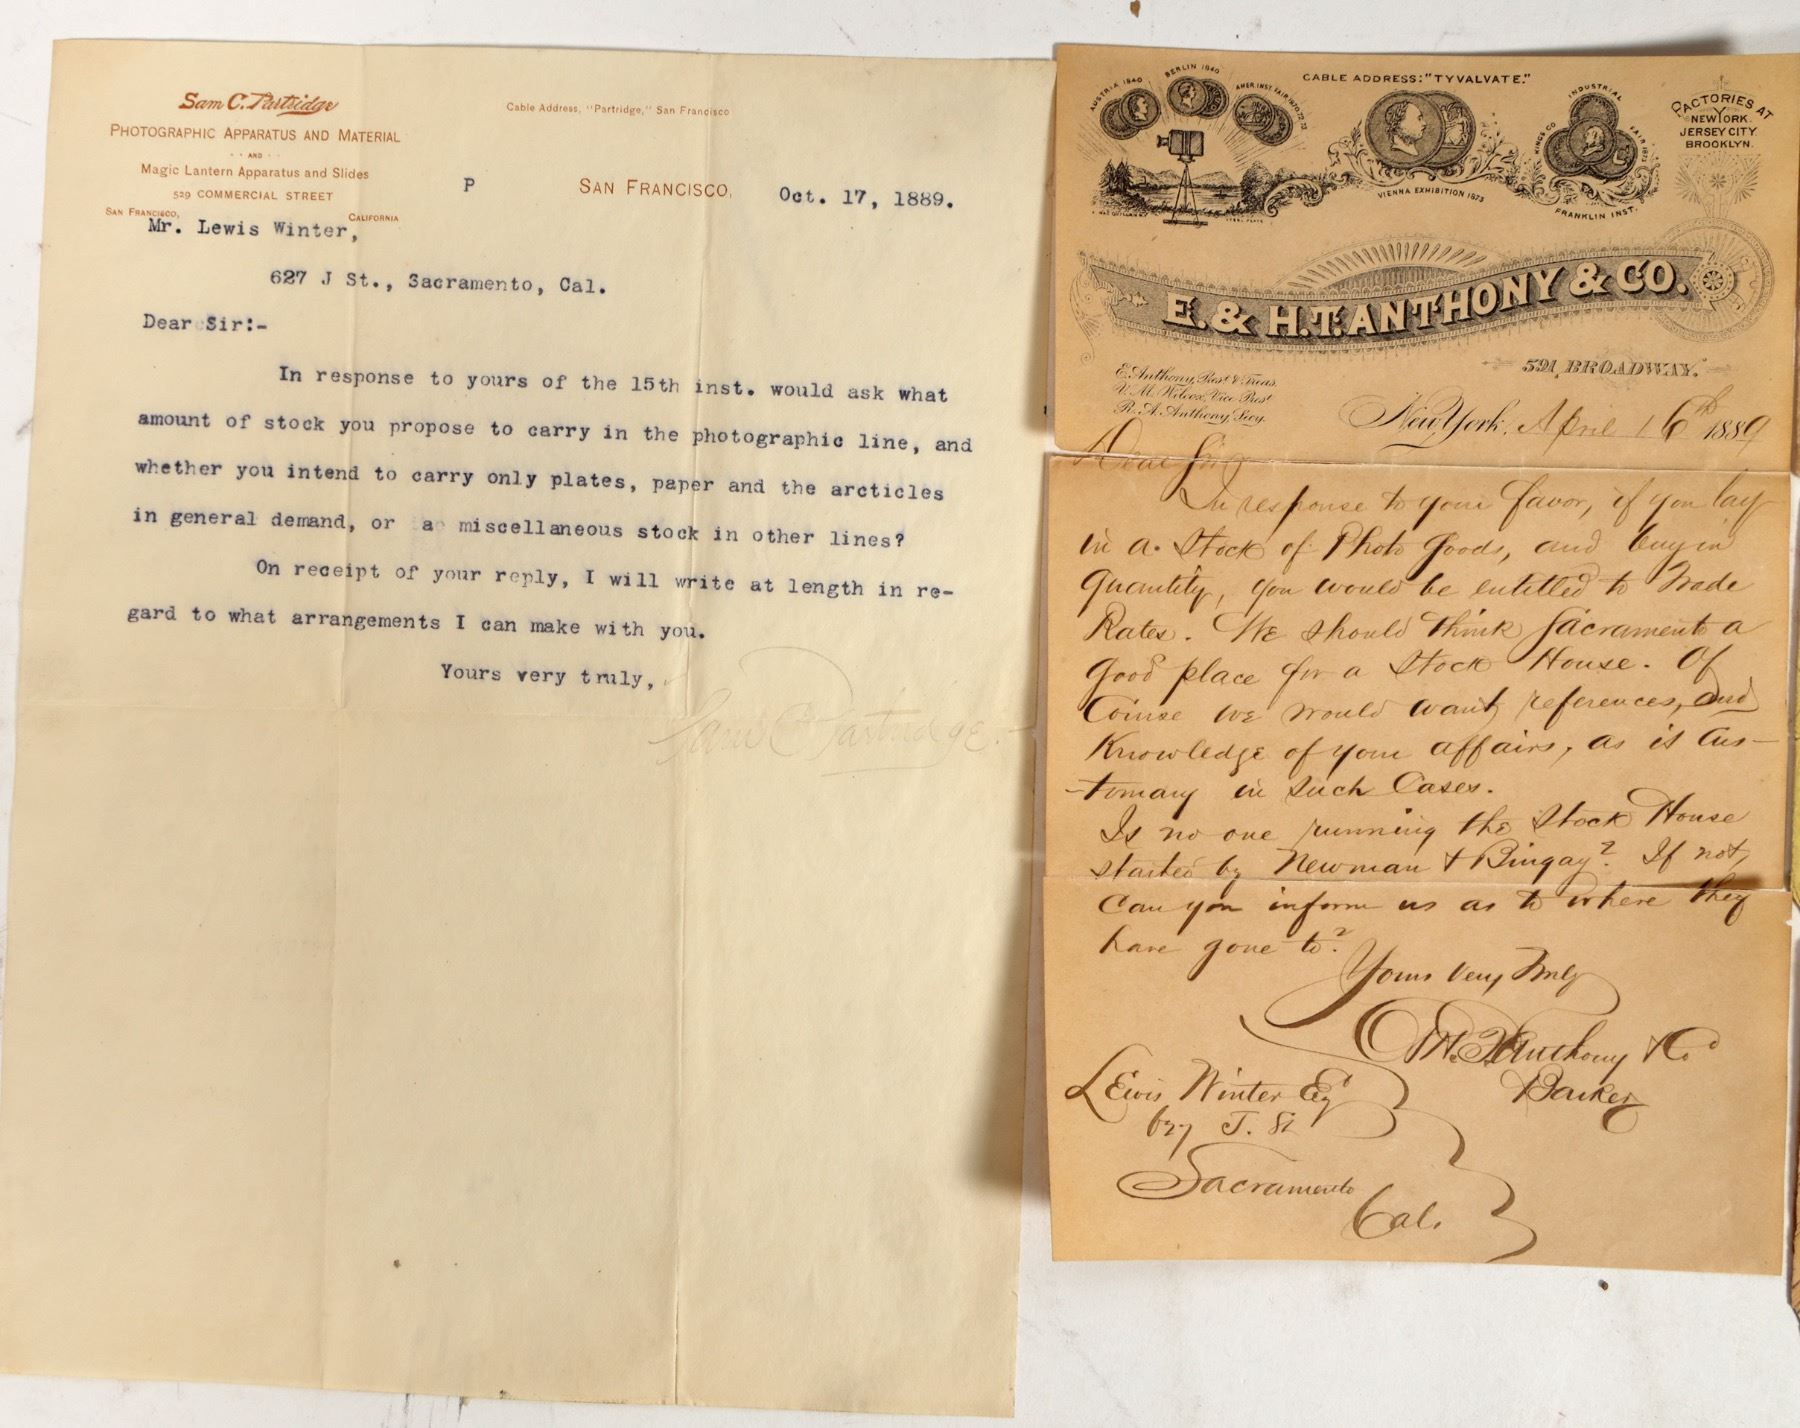 Sam C. Partridge
PHOTOGRAPHIC APPARATUS AND MATERIAL
AND
Magic Lantern Apparatus and Slides
529 COMMERCIAL STREET
SAN FRANCISCO, CALIFORNIA
Cable Address, "Partridge," San Francisco
P SAN FRANCISCO, Oct. 17, 1889.
Mr. Lewis Winter,
627 J St., Sacramento, Cal.
Dear Sir:-
In response to yours of the 15th inst. would ask what
amount of stock you propose to carry in the photographic line, and
whether you intend to carry only plates, paper and the arcticles
in general demand, or a miscellaneous stock in other lines?
On receipt of your reply, I will write at length in re-
gard to what arrangements I can make with you.
Yours very truly,
Sam C Partridge.
CABLE ADDRESS: "TYVALVATE."
AUSTRIA 1840
BERLIN 1840
AMER. INST. FAIR 1870.72.73
VIENNA EXHIBITION 1873
KINGS CO INDUSTRIAL FAIR 1873
FRANKLIN INST.
FACTORIES AT
NEW YORK.
JERSEY CITY.
BROOKLYN.
E. & H.T. ANTHONY & CO.
591, BROADWAY.
E. Anthony, Prest & Treas.
V. M. Wilcox, Vice Prest
R. A. Anthony, Secy.
New York, April 16th 1889
Dear Sir
In response to your favor, if you lay
in a stock of Photo Goods, and buy in
quantity, you would be entitled to Trade
Rates. We should think Sacramento a
good place for a Stock House. Of
Course we would want references, and
Knowledge of your affairs, as is Cus-
-tomary in such Cases.
Is no one running the Stock House
started by Newman & Bingay? If not,
can you inform us as to where they
have gone to?
Yours Very Truly
E & H. T. Anthony & Co
Barker
Lewis Winter Esq
627 J. St
Sacramento
Cal.